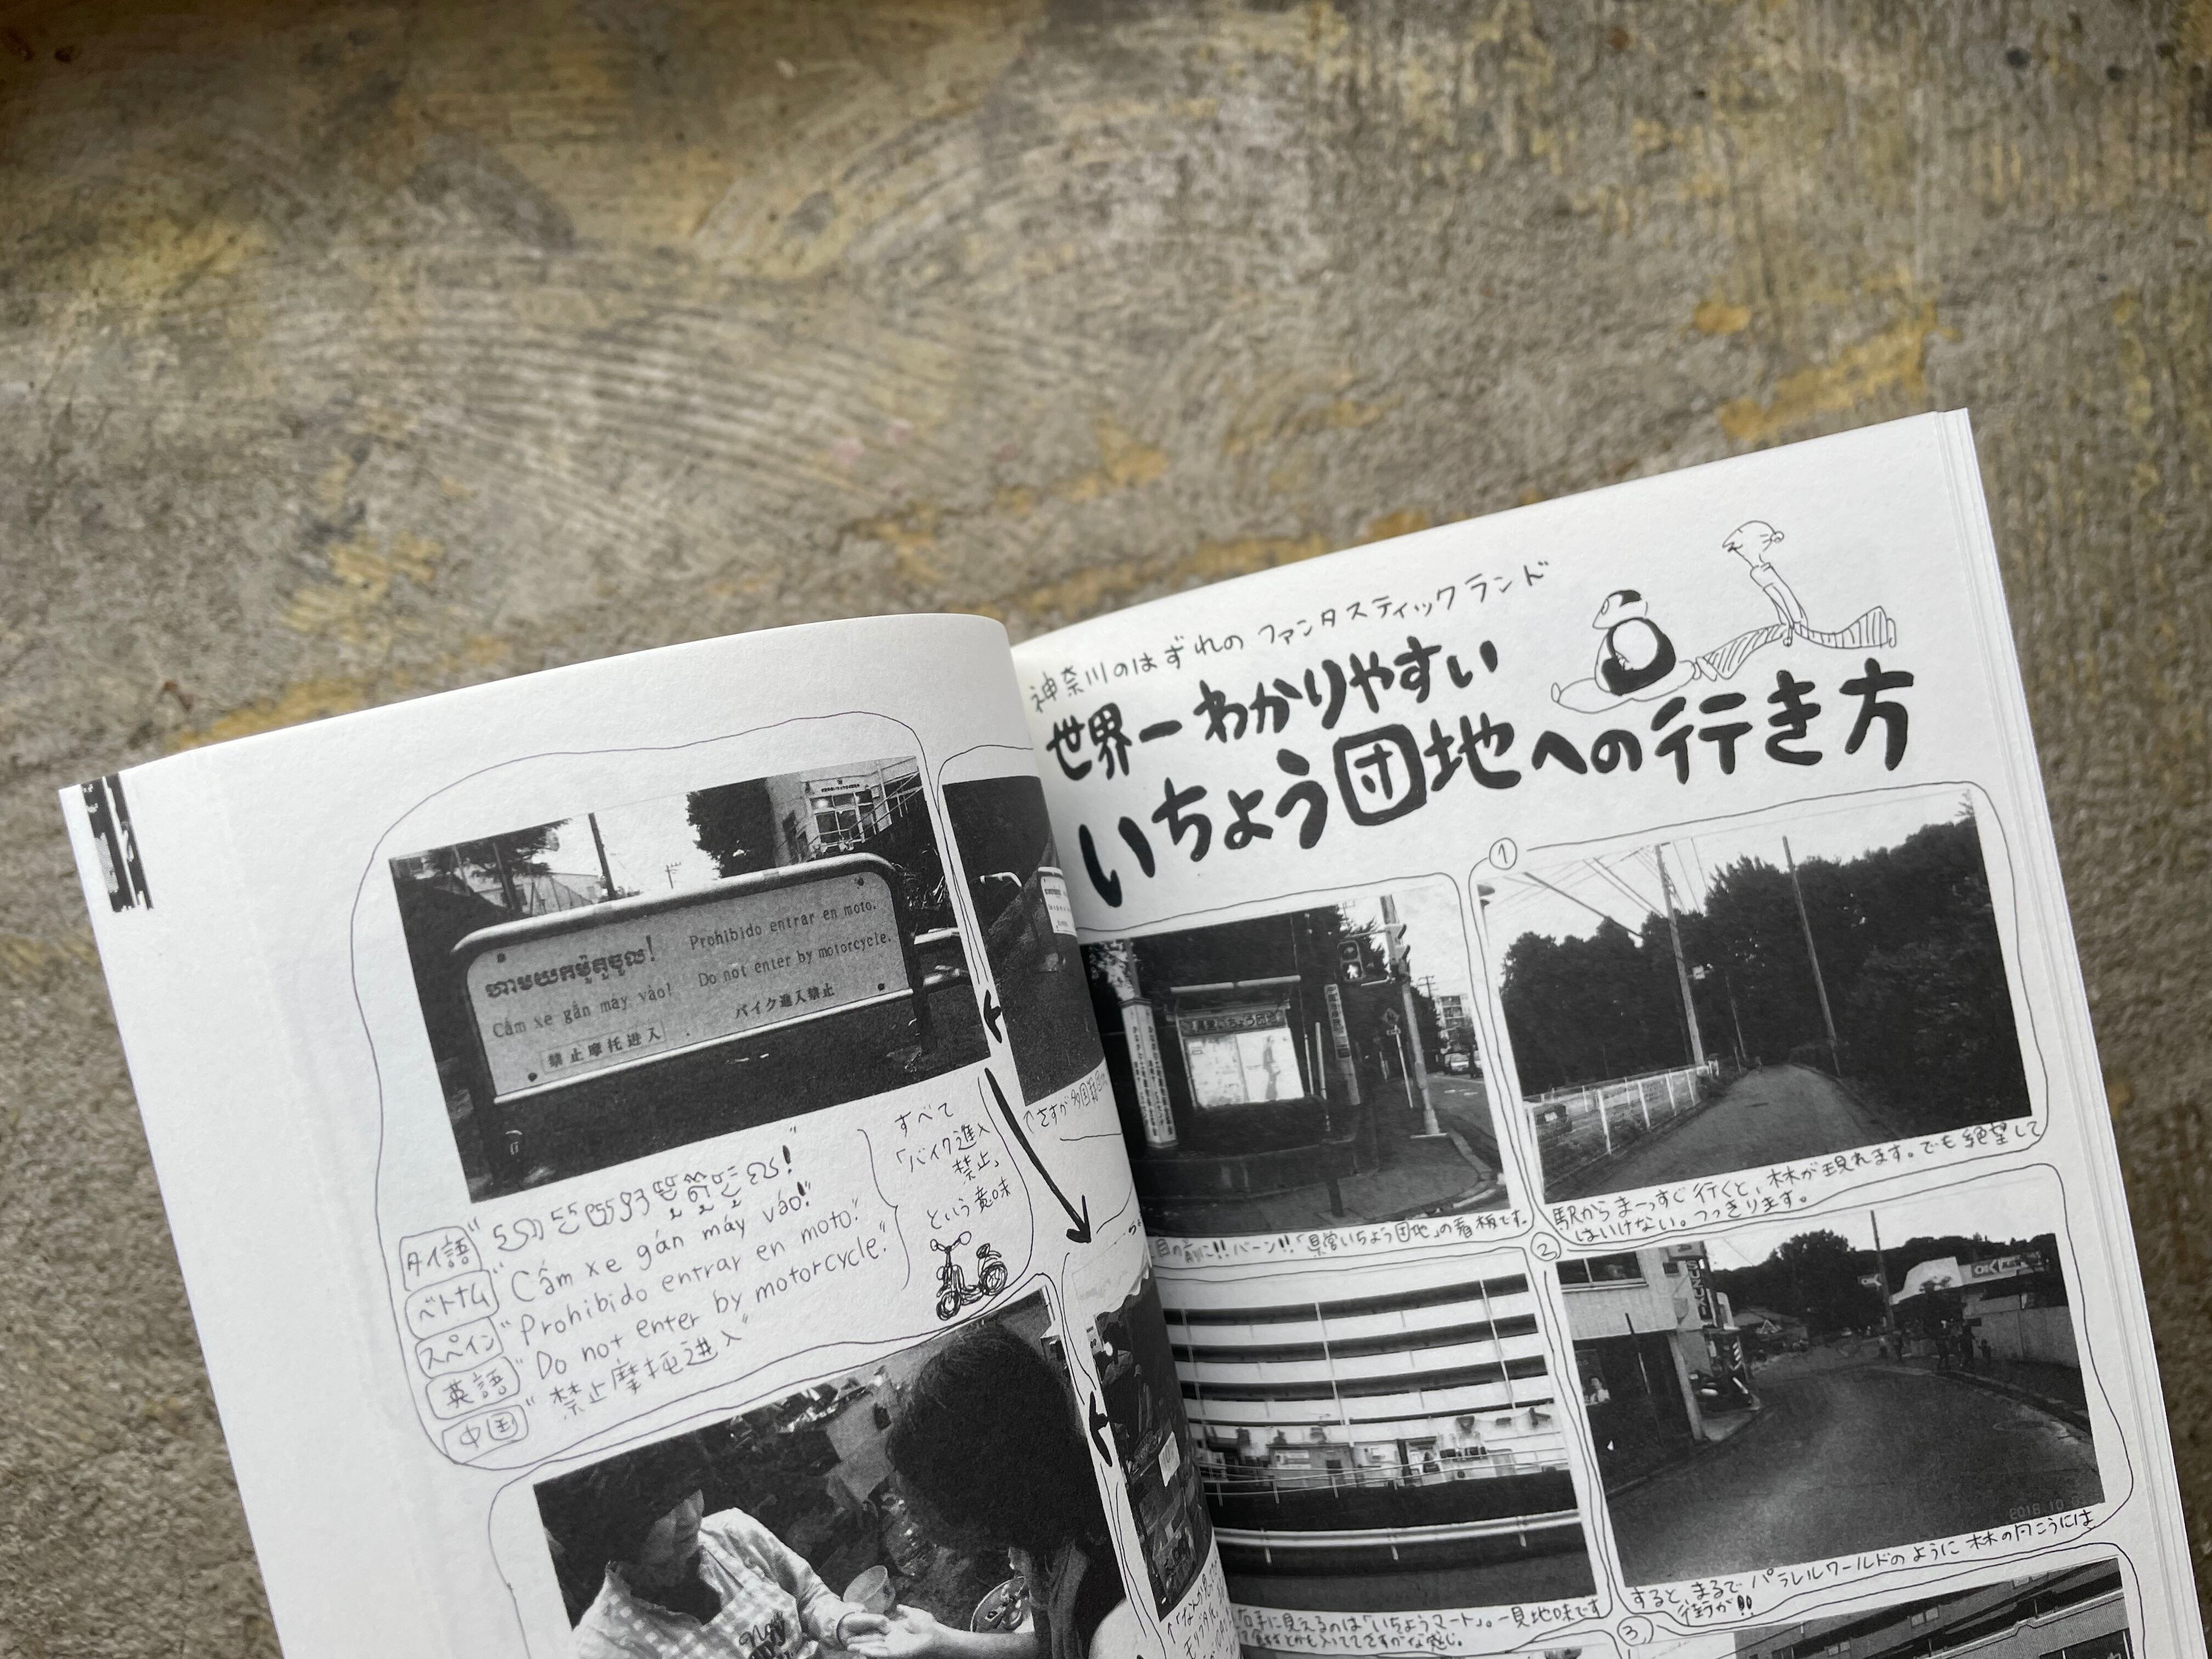 ហាមយកម៉ូតូចូល!
Cấm xe gắn máy vào!
禁止摩托进入
Prohibido entrar en moto.
Do not enter by motorcycle.
バイク進入禁止
タイ語
ベトナム "Cấm xe gắn máy vào!"
スペイン "Prohibido entrar en moto."
英語 "Do not enter by motorcycle."
中国 "禁止摩托进入"
すべて
「バイク進入
禁止」
という意味
↑さすが多国籍団地
神奈川のはずれの ファンタスティックランド
世界一わかりやすい
いちょう団地への行き方
①
駅からまっすぐ行くと、林が現れます。でも絶望して
はいけない。つっきります。
目の前に!!バーン!!「県営いちょう団地」の看板です。
②
2018.10
すると、まるでパラレルワールドのように林の向こうには
街が!!
右手に見えるのは「いちょうマート」。一見地味です
③